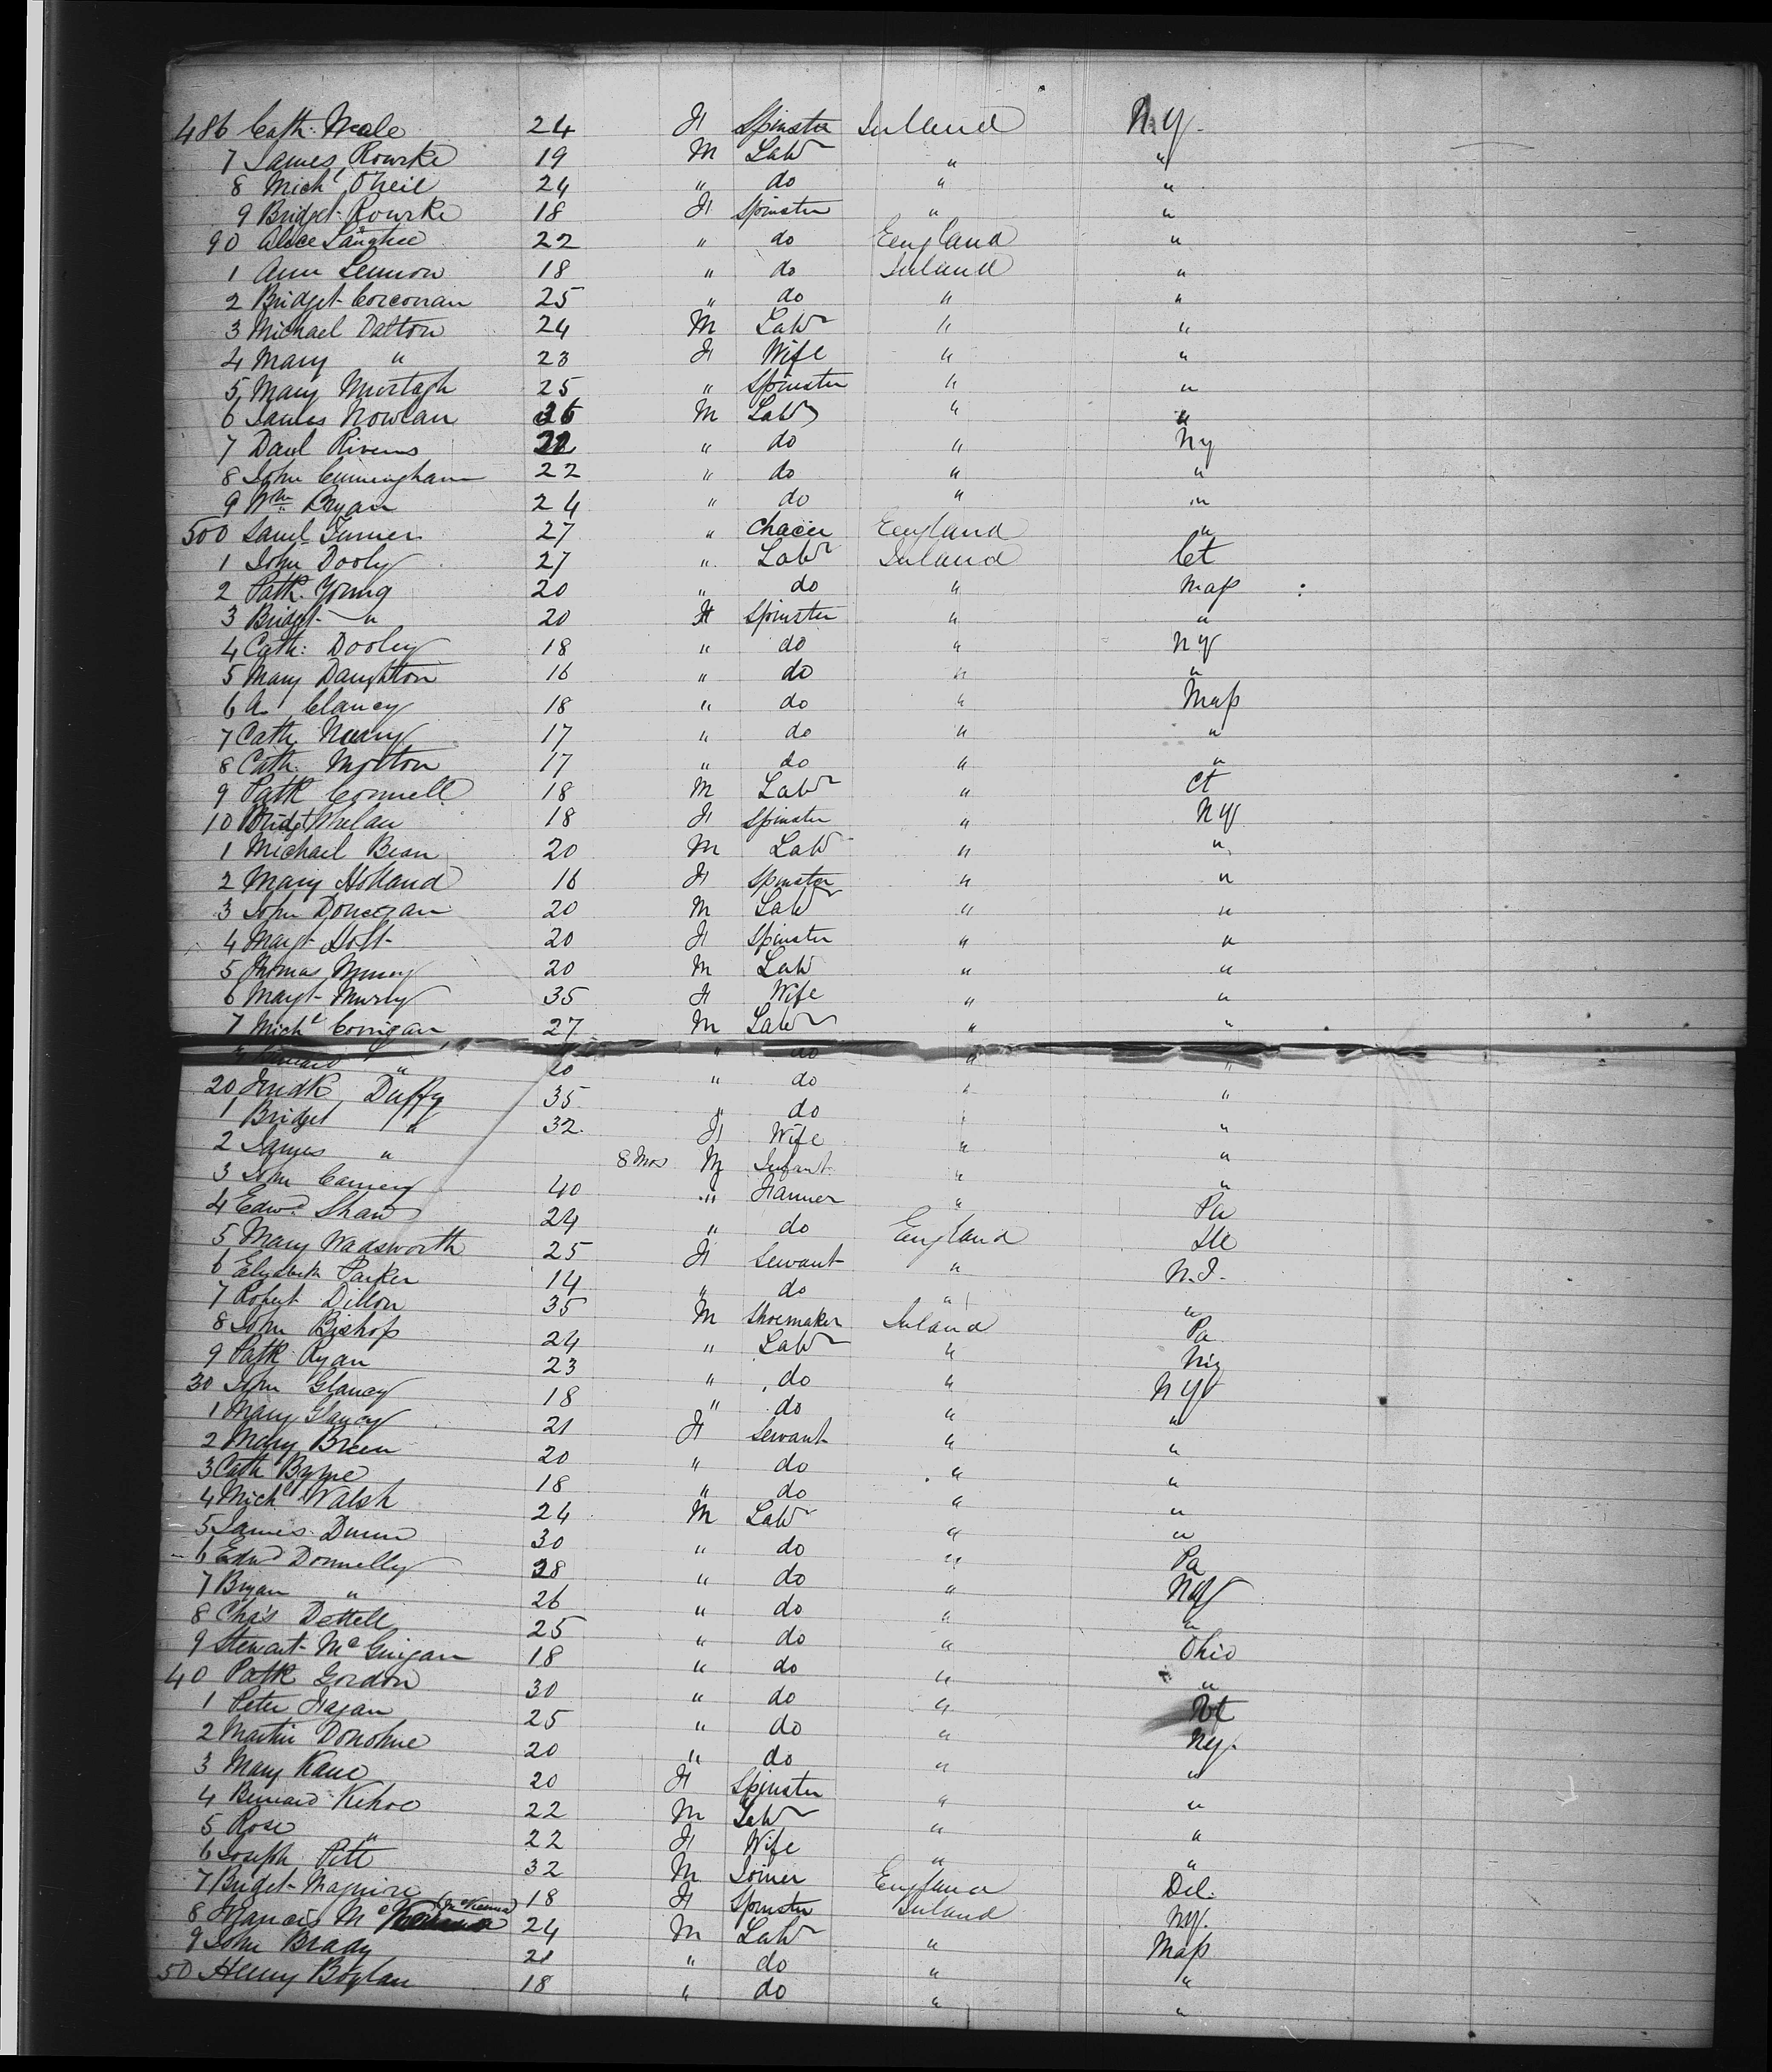 486 Cath: Neale 24 F Spinster Ireland N.Y.
7 James Rourke 19 M Labr " "
8 Michl O'Neil 24 " do " "
9 Bridget Rourke 18 F Spinster " "
90 Alice 22 " do England "
1 Ann Lennon 18 " do Ireland "
2 Bridget Corcoran 25 " do " "
3 Michael Dalton 24 M Labr " "
4 Mary " 23 F Wife " "
5 Mary Murtagh 25 " Spinster " "
6 James Nowlan 36 M Labr " "
7 Danl 22 " do " Ny
8 John Cunningham 22 " do " "
9 Wm Bryan 24 " do " "
500 Saml Turner 27 " England "
1 John Dooly 27 " Labr Ireland Ct
2 Patk. Young 20 " do " Mass
3 Bridgt " 20 F Spinster " "
4 Cath: Dooley 18 " do " NY
5 Mary Daughton 16 " do " "
6 A. Clancy 18 " do " Mass
7 Cath Neary 17 " do " "
8 Cath: Morton 17 " do " "
9 Patk Connell 18 M Labr " Ct
10 Bridgt Phelan 18 F Spinster " NY
1 Michael Bean 20 M Labr " "
2 Mary Holland 16 F Spinster " "
3 John Donegan 20 M Labr " "
4 Margt Holt 20 F Spinster " "
5 Thomas Murry 20 M Labr " "
6 Margt Murry 35 F Wife " "
7 Michl Corrigan 27 M Labr " "
" 20 " do " "
20 Fredk Duffy 35 " do " "
1 Bridget " 32 F Wife " "
2 James " 8 Mos M Infant " "
3 John 40 " Farmer " Pa
4 Edwd. Shaw 24 " do England Ill
5 Mary Wadsworth 25 F Servant " N.J.
6 Elizabeth Parker 14 " do " "
7 Robert Dillon 35 M Shoemaker Ireland Pa
8 John Bishop 24 " Labr " Ny
9 Patk Ryan 23 " do " NY
30 John Glancy 18 " do " "
1 Mary Glancy 21 F Servant " "
2 Mary Breen 20 " do " "
3 Cath Byrne 18 " do " "
4 Michl Walsh 24 M Labr " "
5 James Dunn 30 " do " Pa
6 Edwd Donnelly 28 " do " NY
7 Bryan " 26 " do " "
8 Cha's Dettell 25 " do " Ohio
9 Stewart McGuigan 18 " do " "
40 Patk Gordon 30 " do "
1 Peter Fagan 25 " do " Ny.
2 Martin Donohue 20 " do " "
3 Mary Kane 20 F Spinster " "
4 Bernard Kehoe 22 M Labr " "
5 Rose " 22 F Wife " "
6 Joseph Pitt 32 M Joiner England Del.
7 Bridget Maguire 18 F Spinster Ireland NY.
8 Francis Mc (McKenna) 24 M Labr " Mass
9 John Brady 21 " do " "
50 Henry Boylan 18 " do " "